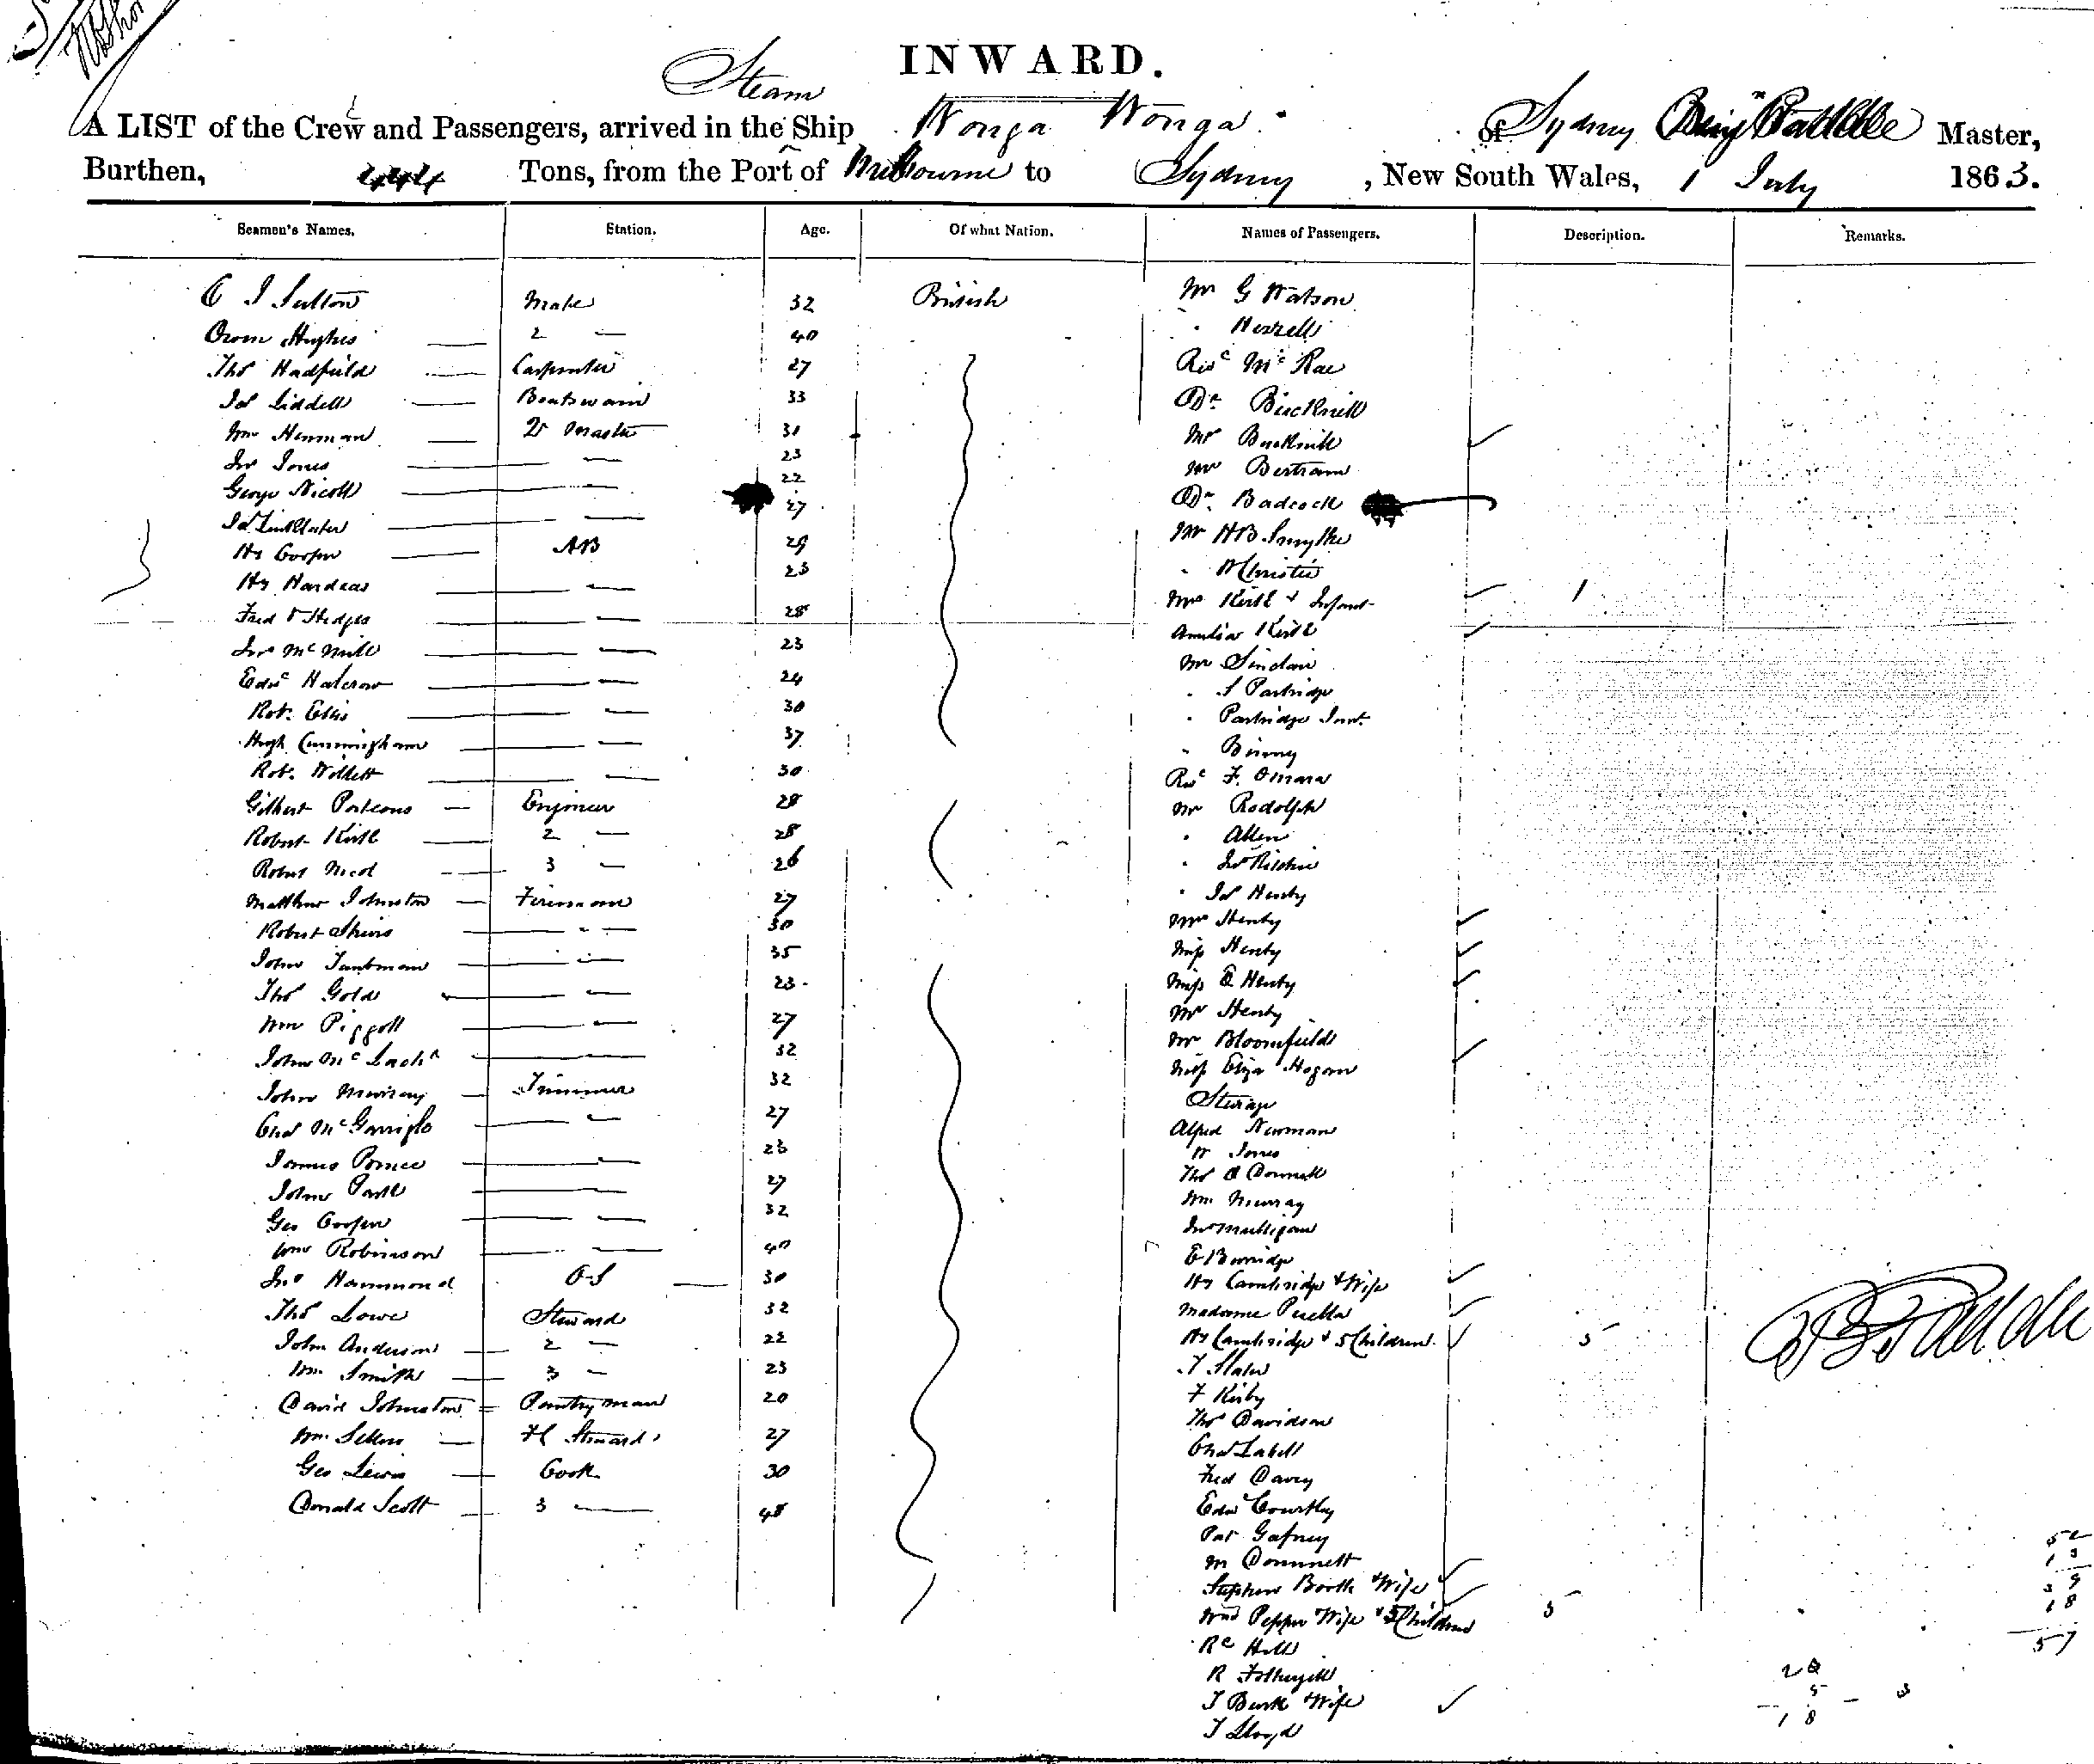 INWARD.
Steam
A LIST of the Crew and Passengers, arrived in the Ship Wonga Wonga of Sydney Master,
Burthen, 444 Tons, from the Port of Melbourne to Sydney, New South Wales, 1 July 1863.
Seamen's Names. Station. Age. Of what Nation. Names of Passengers. Description. Remarks.
Mate 32 British Mr G Watson
Owen Hughes 2 — 40
Thos Hadfield Carpenter 27 Revd Mc Rae
Jas Liddell Boatswain 33 Dr Bucknell
Wm Henman Qr Master 30 Mr Bucknell
Jno Jones — 23 Mr Bertram
George Nicoll — 22 Dr. Badcock
Jas Linklater — 27 Mr HB Smythe
Hy Cooper AB 29 W Christie
Hy — 23 Mrs Kirk & Infant 1
Fred Hedges — 28 Amelia Kirk
Jno Mc — 23 Mr Sinclair
Edwd Halcrow — 24 S Partridge
Robt. Ellis — 30 Partridge Junr.
Hugh Cunningham — 37 Binny
Robt. Willett — 30 Revd F. Omara
Gilbert Porteous — Engineer 28 Mr Rodolph
Robert Kirk 2 — 28 Allen
Robert Nicol 3 — 26 Jno Ritchie
Matthew Johnston — Fireman 27 Jas Henty
Robert — 30 Mrs Henty
John Taubman — 35 Miss Henty
Thos Gold — 23 Miss E Henty
Wm Piggott — 27 Mr Henty
John Mc Lachn — 32 Mr Bloomfield
John Murray — Trimmer 32 Miss Eliza Hogan
Steerage
Chas McGarrigle — 27 Alfred Newman
James Prince — 23 W Jones
John Park — 27 Thos O Donnell
Geo Cooper — 32 Wm. Murray
Wm Robinson — 40 Jno Mulligan
E Burridge
Jno Hammond OS — 30 Hy Cambridge & Wife
Thos Lowe Steward 32 Madame
John Anderson — 2 — 22 Hy Cambridge & 5 Children 5
Wm. Smith — 3 — 23 T Slater
David Johnston Pantryman 20 F Kirby
Thos Davidson
Wm. Sellers — Steward 27 Chas Labell
Geo Lewis — Cook 30 Fred Davey
Donald Scott — 3 — 48 Edwd Courtley
Pat Gafney
M Donnett
Stephen Booth & Wife
Wm Pepper Wife & 3 Children 3
Hill
R Fothergill
J Burk Wife
J Lloyd
52
13
39
18
57
18